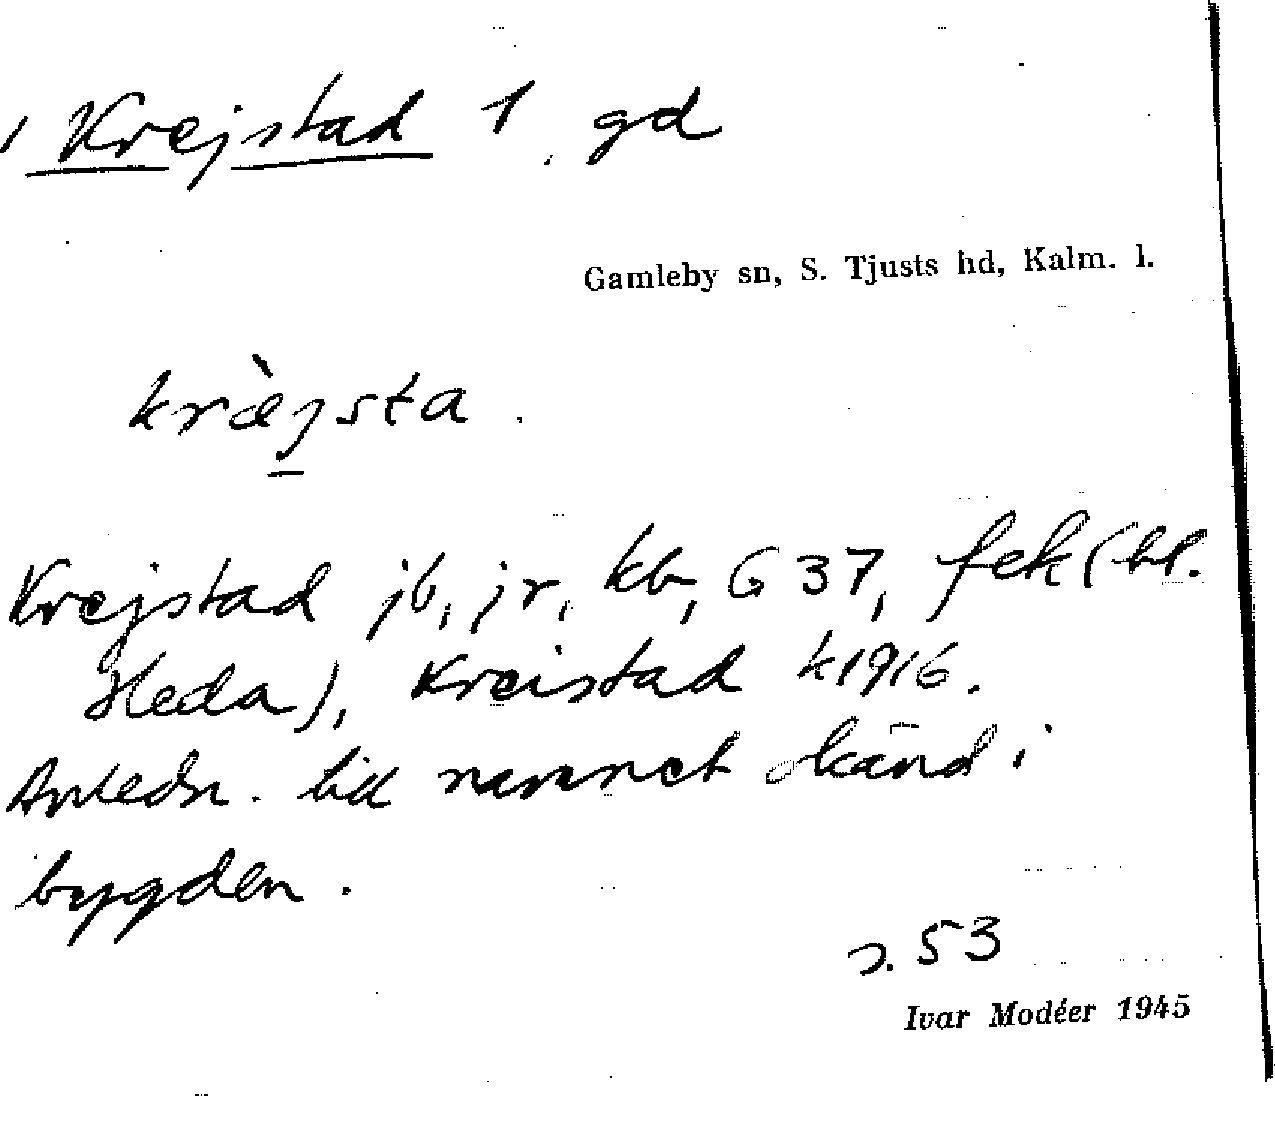 Krejstad 1 gd
Gamleby sn, S. Tjusts hd, Kalm. l.
kræ̀jsta.
Krejstad jb, jr, kb, G 37, fek (bl.
Heda), Kreistad k1916.
Anledn. till namnet okänd i
bygden.
s. 53
Ivar Modéer 1945